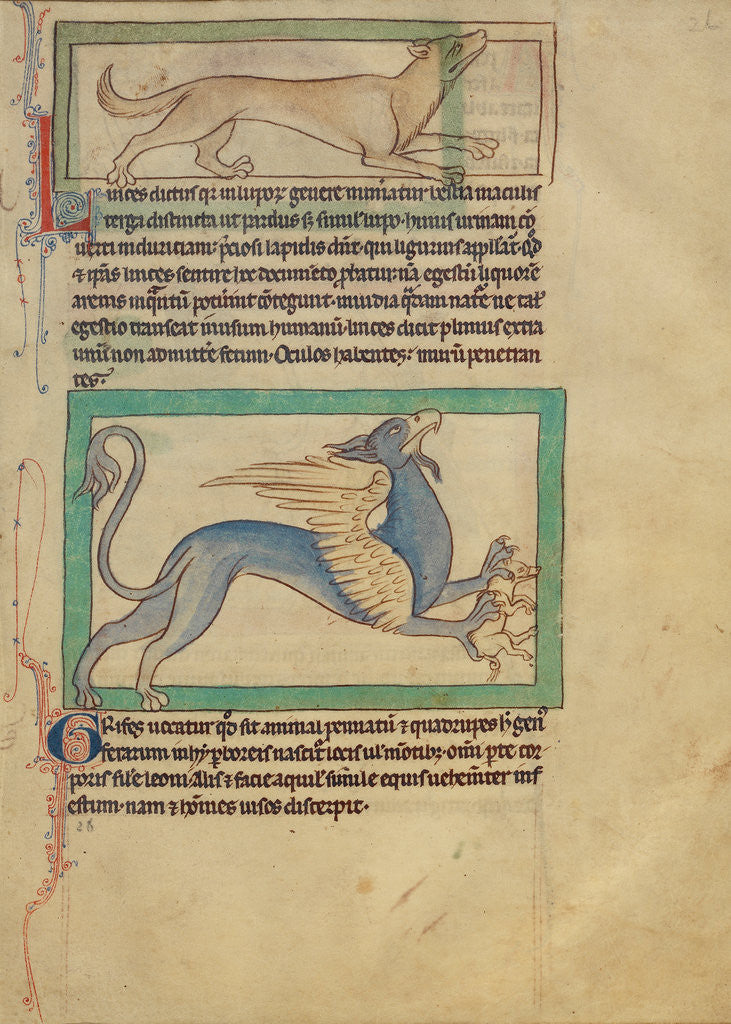 26
Linces dictus qr in lupoꝝ genere num̄atur bestia maculis
terga distincta ut pardus sꝫ simil' lupo · huius urinam cō
uerti in duriciam p̄ciosi lapidis dn̄t · qui ligurius appllat̄ · qd̄
⁊ ip̄as linces sentire hoc documēto ꝓbatur · nā egestū liquorē
arenis inq̄ntū potūint cōtegunt · inuidia q̄dam nat̄e ne tal'
egestio transeat in usum humanū · linces dicit plinius extra
unū non admitt̄e fetum · Oculos habentes murū penetran
tes ·
GRifes uocatur qd̄ sit animal pennatū ⁊ quadrupes h̄ gen'
ferarum in hyꝑboreis nascit̄ locis ul' mōtibꝫ · om̄i ꝑte cor
poris si͛le leoni · Alis ⁊ facie aquil' simile equis uehem̄ter inf
estum · nam ⁊ hōines uisos discerpit ·
26